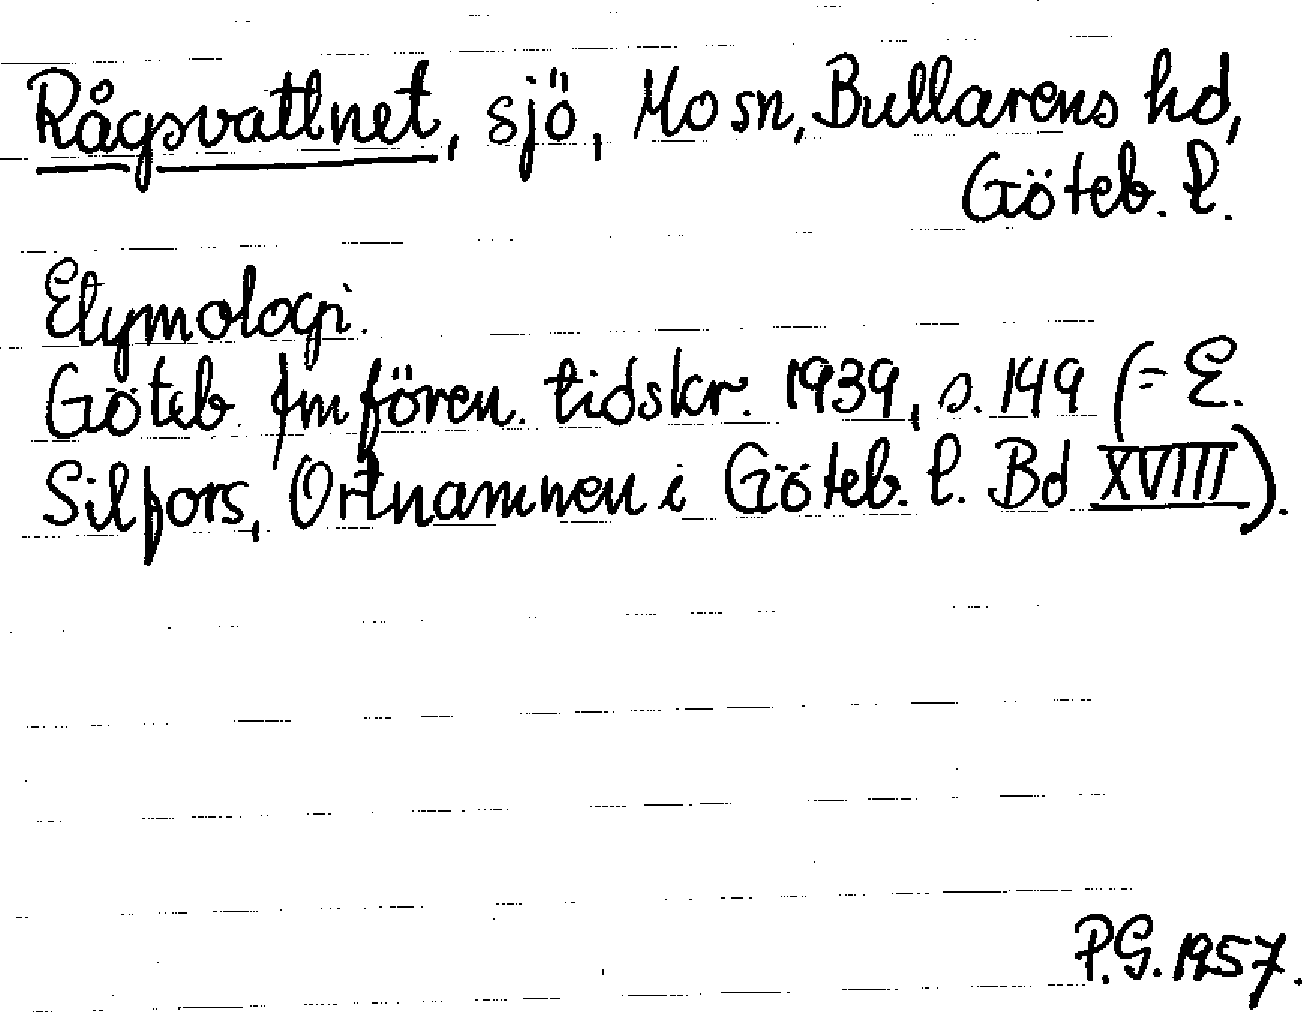 Rågsvattnet, sjö, Mo sn, Bullarens hd,
Göteb. l.
Etymologi.
Göteb. Fmfören. tidskr. 1939, s. 149 (= E.
Silfors, Ortnamnen i Göteb. l. Bd XVIII).
P.G. 1957.